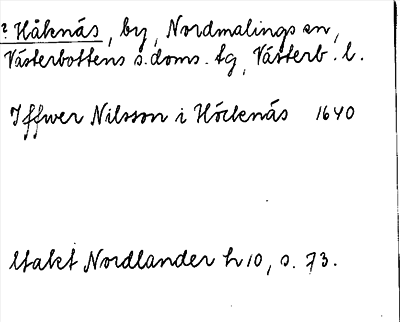 ? Håknäs, by, Nordmalings sn,
Västerbottens s.doms. tg, Västerb. l.
Iffwer Nilsson i Höcknäs 1640
Utakt Nordlander h 10, s. 73.